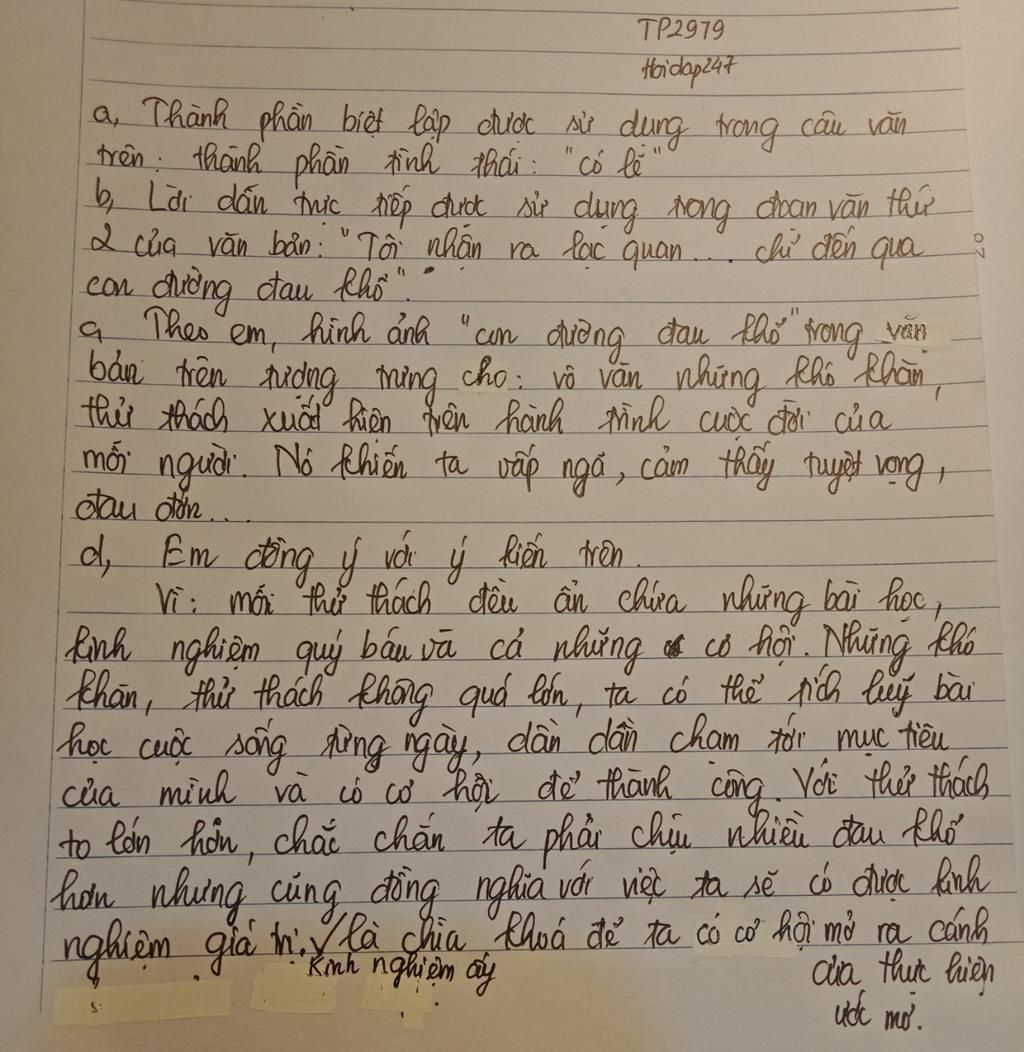 TP2979
Hoidap247
a, Thành phần biệt lập được sử dụng trong câu văn
trên: thành phần tình thái: "có lẽ"
b, Lời dẫn trực tiếp được sử dụng trong đoạn văn thứ
2 của văn bản: "Tôi nhận ra lạc quan... chỉ đến qua
con đường đau khổ".
c, Theo em, hình ảnh "con đường đau khổ" trong văn
bản trên tượng trưng cho: vô vàn những khó khăn,
thử thách xuất hiện trên hành trình cuộc đời của
mỗi người. Nó khiến ta vấp ngã, cảm thấy tuyệt vọng,
đau đớn...
d, Em đồng ý với ý kiến trên.
Vì: mỗi thử thách đều ẩn chứa những bài học,
kinh nghiệm quý báu và cả những cơ hội. Những khó
khăn, thử thách không quá lớn, ta có thể tích luỹ bài
học cuộc sống từng ngày, dần dần chạm tới mục tiêu
của mình và có cơ hội để thành công. Với thử thách
to lớn hơn, chắc chắn ta phải chịu nhiều đau khổ
hơn nhưng cũng đồng nghĩa với việc ta sẽ có được kinh
nghiệm giá trị. √ là chìa khoá để ta có cơ hội mở ra cánh
Kinh nghiệm ấy cửa thực hiện
ước mơ.